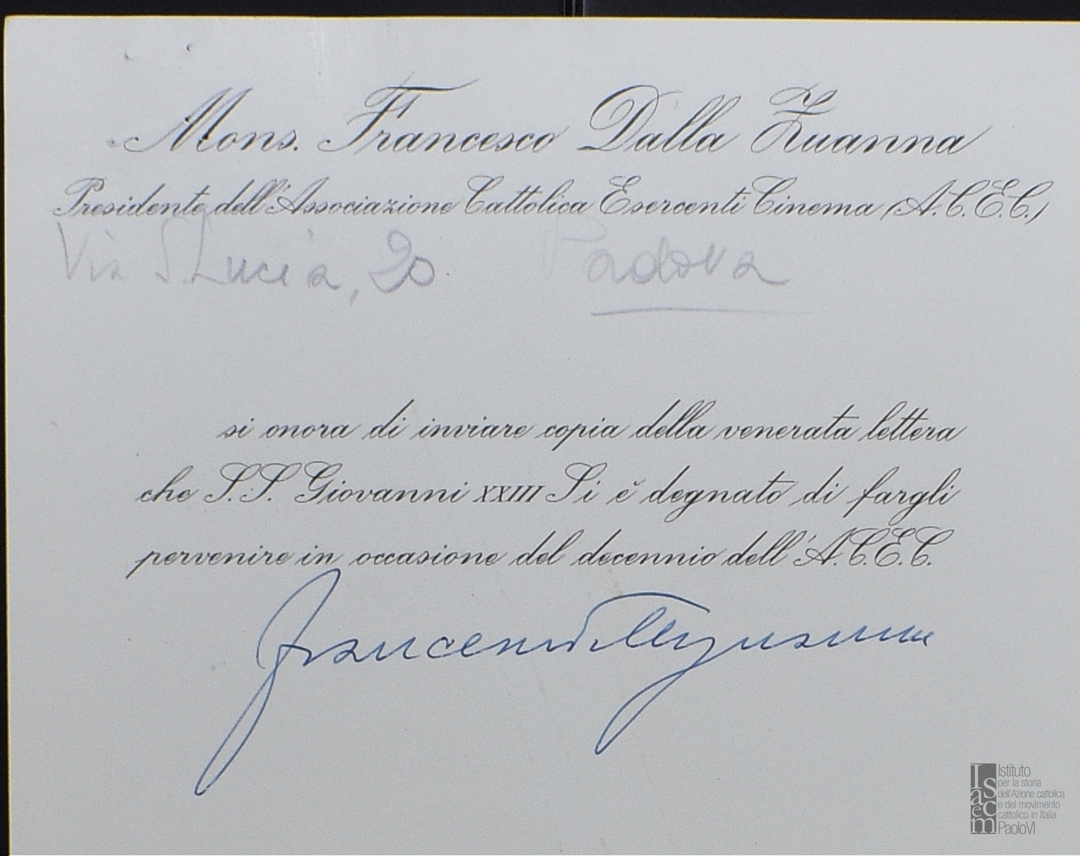 Mons. Francesco Dalla Zuanna
Presidente dell'Associazione Cattolica Esercenti Cinema (A.C.E.C.)
Via S. Lucia, 20 Padova
si onora di inviare copia della venerata lettera
che S.S. Giovanni XXIII Si è degnato di fargli
pervenire in occasione del decennio dell'A.C.E.C.
Isacem
Istituto
per la storia
dell'Azione cattolica
e del movimento
cattolico in Italia
PaoloVI